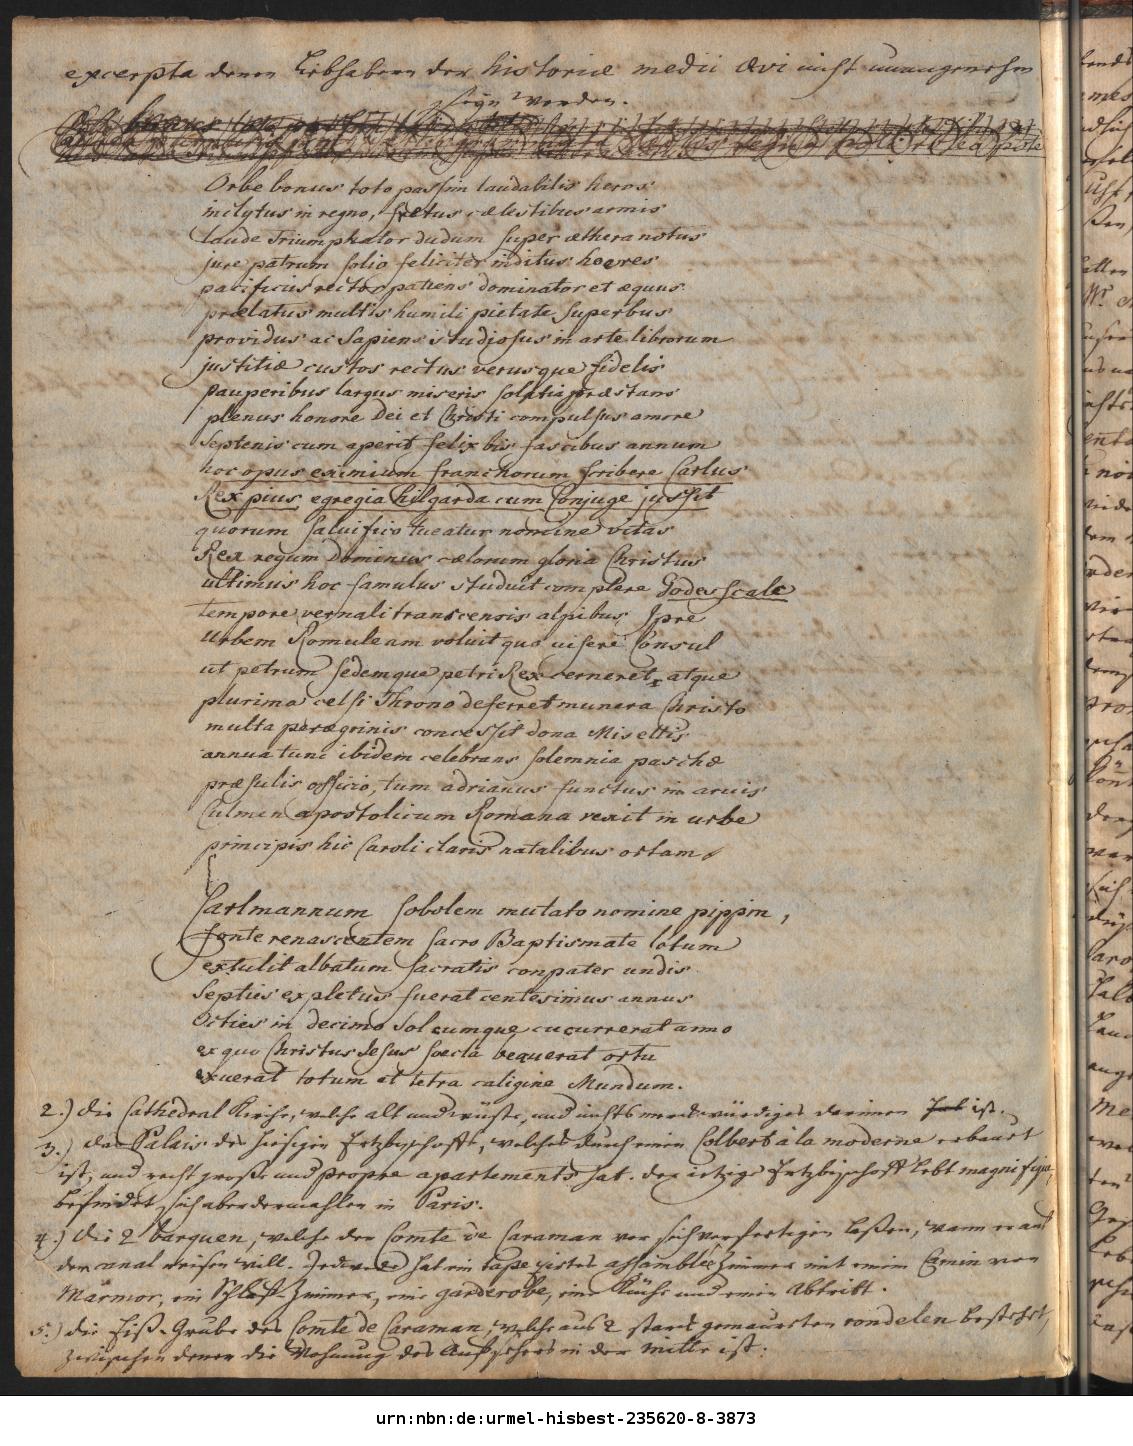 excerpta denen Liebhabern der historiæ medii ævi nicht unangenehm
seyn werden.
Orbe bonus toto passim laudabilis heros
inclytus in regno, frætus cælestibus armis
laude Triumphator dudum super æthera notus
jure patrum solio feliciter inditus hoeres
pacificus rector patiens dominator et æquus
prælatus multis humili pietate superbus
providus ac Sapiens studiosus in arte librorum
justitiæ custos rectus verusque fidelis
pauperibus largus miseris solatia præstans
plenus honore Dei et Christi compulsus amore
Septenis cum aperit felix bis fascibus annum
hoc opus eximium franchorum scribere Carlus
Rex pius egregia hilgarda cum Conjuge jussit
quorum saluifico tueatur nomine vitas
Rex regum Dominus cælorum gloria Christus
ultimus hoc famulus studuit complere Godesscalc
tempore vernali transcensis alpibus Ipse
Urbem Romuleam voluit quo uisere Consul
ut petrum sedemque petri Rex cerneret atque
plurima celsi Throno deferret munera Christo
multa peregrinis concessit dona Misellis
annua tunc ibidem celebrans solemnia paschæ
præsulis officio, tum adrianus functus in aruis
Culmen apostolicum Romana rexit in urbe
principis hic Caroli claris natalibus ortam
Carlmannum sobolem mutato nomine pippin,
fonte renascentem sacro Baptismate lotum
extulit albatum sacratis conpater undis
Septies expletus fuerat centesimus annus
Octies in decimo Sol cumque cucurrerat anno
ex quo Christus Jesus soecla bequerat ortu
exuerat totum et tetra caligine Mundum.
2.) die Cathedral Kirche, welche alt und wüste, und nichts merckwürdiges darinnen ist.
3.) das Palais des hiesigen Ertzbischoffs, welches durch einen Colbert à la moderne erbauet
ist, und recht große und propre apartements hat. der ietzige Ertzbischoff lebt magnifique,
befindet sich aber dermahlen in Paris.
4.) die 2 barquen, welche der Comte de Caraman vor sich verfertigen laßen, wann er auf
dem canal reisen will. Jedwede hat ein tapezirtes assamblée Zimmer mit einem Camin von
Marmor, ein Schlaf-Zimmer, eine garderobe, eine Küche und einen Abtritt.
5.) die Eiß-Grube des Comte de Caraman, welche aus 2 starck gemauerten rondelen bestehet,
zwischen denen die Wohnung des Aufsehers in der mitte ist.
urn:nbn:de:urmel-hisbest-235620-8-3873